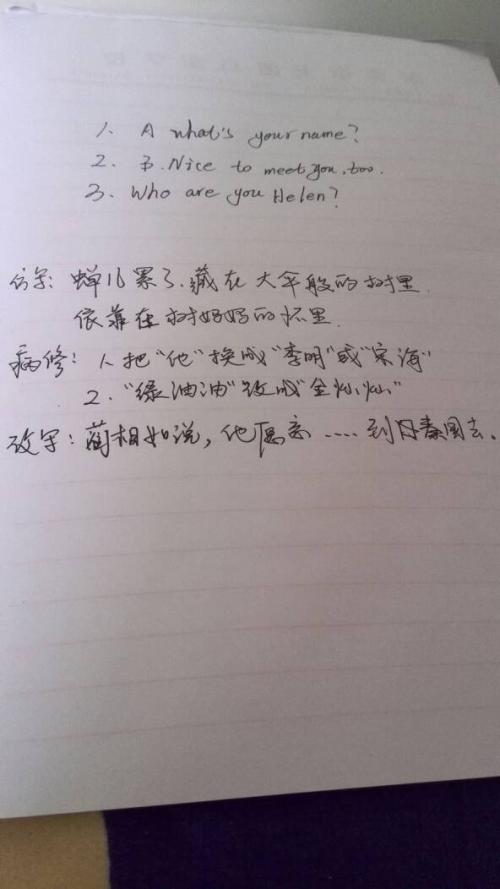 1. A what's your name?
2. B. Nice to meet you, too.
3. Who are you Helen?
仿写: 蝉儿累了.藏在大伞般的树里.
依靠在树妈妈的怀里.
病修: 1. 把"他"换成"李明"或"宋海"
2. "绿油油"改成"金灿灿"
改写: 蔺相如说, 他愿意.....到秦国去.